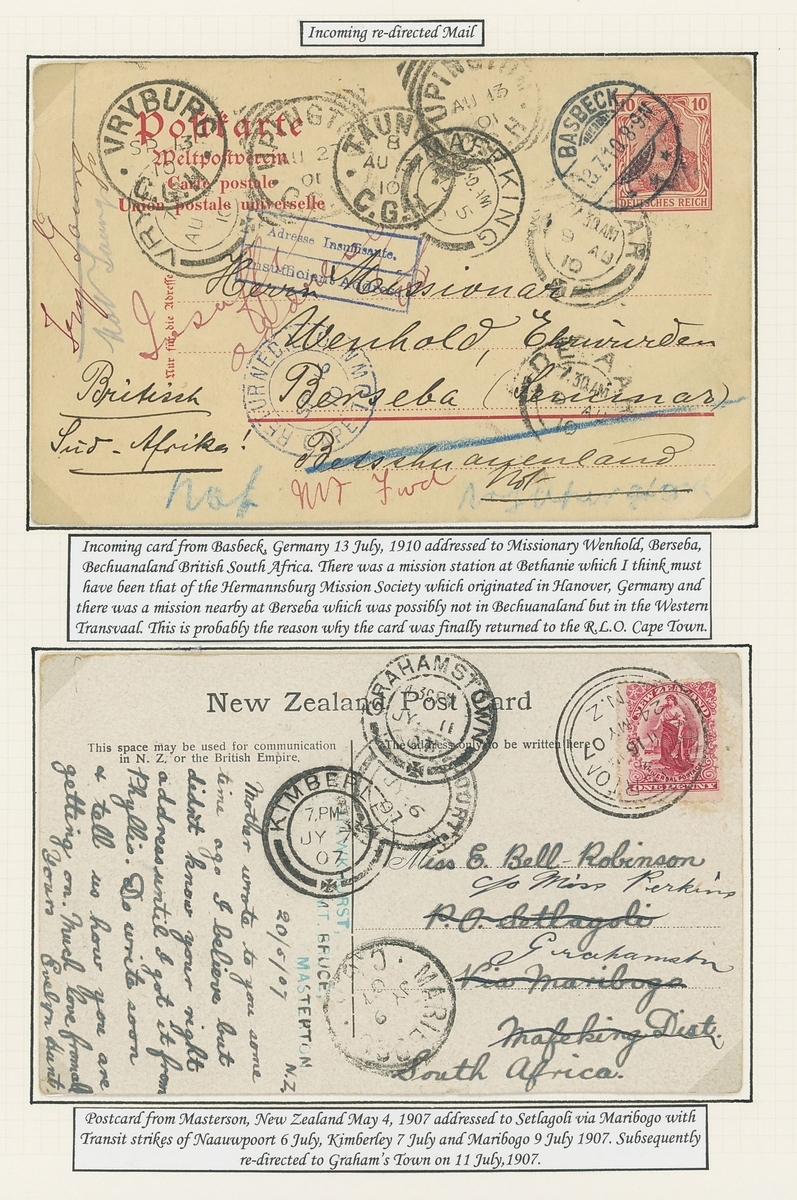 Incoming re-directed Mail
Postkarte
Weltpostverein
Carte postale
Union postale universelle
VRYBURG
C.G.H
TAUN
AU
10
C.G.H
UPINGTON
AU 13
01
MAFEKING
BASBECK
13.7.10.8-9N
10
DEUTSCHES REICH
7.30AM
9 AU
10
Adresse Insuffisante.
Insufficient Address
Nur für die Adresse
Herrn Missionar
Wenhold, Ehrwürden
Berseba (Seminar)
Betschuanenland
Britisch
Süd-Afrika!
RETURNED
CAPE TOWN
DE AAR
7.30AM
AU
10
Not
Not Fwd
Incoming card from Basbeck, Germany 13 July, 1910 addressed to Missionary Wenhold, Berseba,
Bechuanaland British South Africa. There was a mission station at Bethanie which I think must
have been that of the Hermannsburg Mission Society which originated in Hanover, Germany and
there was a mission nearby at Berseba which was possibly not in Bechuanaland but in the Western
Transvaal. This is probably the reason why the card was finally returned to the R.L.O. Cape Town.
New Zealand Post Card
This space may be used for communication
in N. Z, or the British Empire.
The address only to be written here
GRAHAMSTOWN
JY 11
07
KIMBERLEY
7.PM
JY 7
07
JY 6
07
N.Z.
MY 07
NEW ZEALAND
UNIVERSAL POSTAGE
ONE PENNY
MT. BRUCE,
MASTERTON
N.Z,
20/5/07
Mother wrote to you some
time ago I believe but
didn't know your right
address until I got it from
Phyllis. Do write soon
& tell us how you are
getting on. Much love from all
Yours Evelyn Hunt.
Miss E. Bell-Robinson
c/o Miss Perkins
P.O. Setlagoli
Grahamstn
Via Maribogo
Mafeking Dist.
South Africa.
Postcard from Masterson, New Zealand May 4, 1907 addressed to Setlagoli via Maribogo with
Transit strikes of Naauwpoort 6 July, Kimberley 7 July and Maribogo 9 July 1907. Subsequently
re-directed to Graham's Town on 11 July,1907.